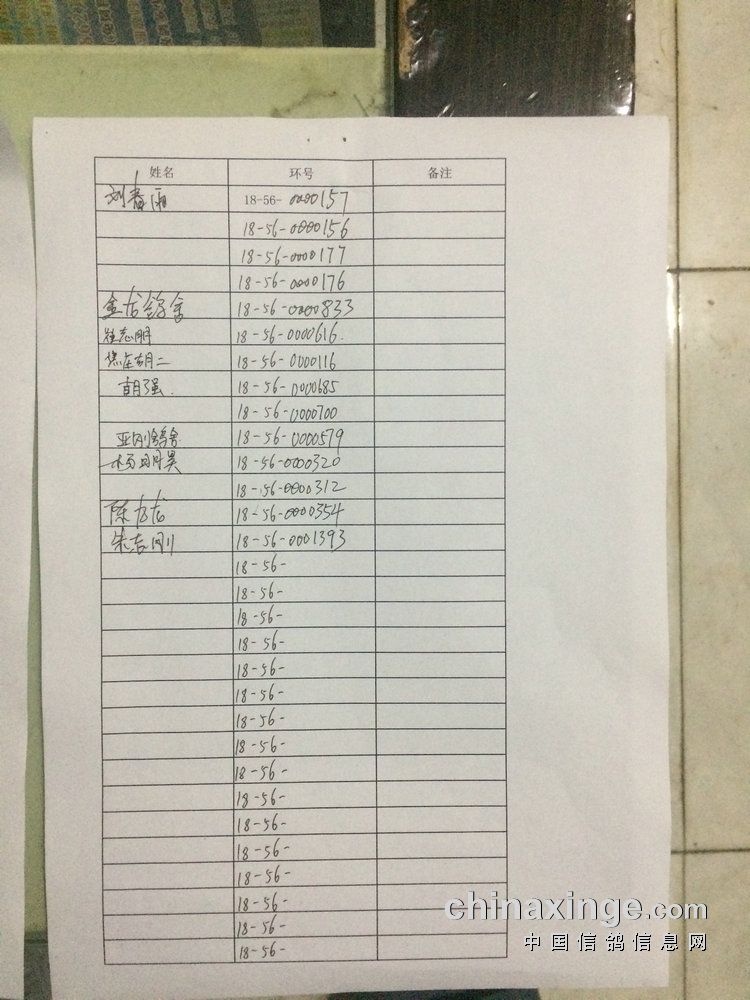 姓名 环号 备注
刘春雨 18-56-0000157
18-56-0000156
18-56-0000177
18-56-0000176
金龙鸽舍 18-56-0000833
18-56-0000616.
18-56-0000116
胡强. 18-56-0000685
18-56-0000700
亚刚鸽舍 18-56-0000579
杨明昊 18-56-0000320
18-56-0000312
陈龙 18-56-0000354
朱志刚 18-56-0001393
18-56-
18-56-
18-56-
18-56-
18-56-
18-56-
18-56-
18-56-
18-56-
18-56-
18-56-
18-56-
18-56-
18-56-
18-56-
18-56-
chinaxinge.com
中国信鸽信息网